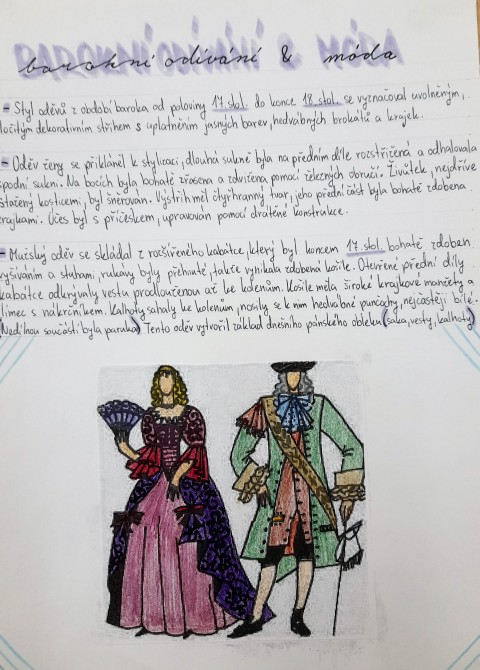 barokní odívání & móda
- Styl oděvů z období baroka od poloviny 17. stol. do konce 18. stol. se vyznačoval uvolněným,
složitým dekorativním střihem s uplatněním jasných barev, hedvábných brokátů a krajek.
- Oděv ženy se přikláněl k stylizaci, dlouhá sukně byla na předním díle rozstřižená a odhalovala
spodní sukni. Na bocích byla bohatě zřasena a zdvižena pomocí železných obručí. Živůtek, nejdříve
stažený kosticemi, byl šněrován. Výstřih měl čtyřhranný tvar, jeho přední část byla bohatě zdobena
krajkami. Účes byl s příčeskem, upravován pomocí drátěné konstrukce.
- Mužský oděv se skládal z rozšířeného kabátce, který byl koncem 17. stol. bohatě zdoben
vyšíváním a stuhami, rukávy byly přehnuté, takže vynikala zdobená košile. Otevřené přední díly
kabátce odkrývaly vestu prodlouženou až ke kolenům. Košile měla široké krajkové manžety a
límec s nákrčníkem. Kalhoty sahaly ke kolenům, nosily se k nim hedvábné punčochy, nejčastěji bílé.
(Nedílnou součástí byla paruka) Tento oděv vytvořil základ dnešního pánského obleku (saka, vesty, kalhoty)